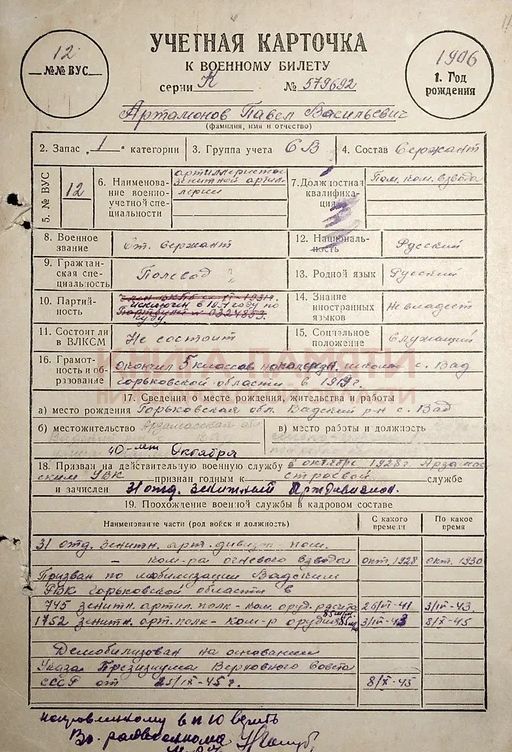 УЧЕТНАЯ КАРТОЧКА
К ВОЕННОМУ БИЛЕТУ
серии К № 579692
12
№№ ВУС
1906
1. Год рождения
Артамонов Павел Васильевич
(фамилия, имя и отчество)
2. Запас „1" категории
3. Группа учета СВ
4. Состав Сержант
5. № ВУС 12
6. Наименование военно-учетной специальности
зенитной артиллерии
7. Должностная квалификация
Пом. ком. взвода
8. Военное звание Ст. сержант
12. Националь-ность Русский
9. Гражданская специальность Полевод
13. Родной язык Русский
10. Партийность
исключен в 1957 году по
14. Знание иностранных языков Не владеет
11. Состоит ли в ВЛКСМ Не состоит
15. Социальное положение Служащий
16. Грамотность и образование окончил 5 классов школы с. Вад
Горьковской области в 1919 г.
КНИГА ПАМЯТИ
17. Сведения о месте рождения, жительства и работы
а) место рождения Горьковская обл. Вадский р-н с. Вад
б) местожительство
в) место работы и должность
40-лет Октября
18. Призван на действительную военную службу в октябре 1928 г. Арзамас-
ским РВК признан годным к строевой службе
и зачислен 31 отд. зенитный Артдивизион.
19. Прохождение военной службы в кадровом составе
Наименование части (род войск и должность)
С какого времени
По какое время
31 отд. зенитн. арт. дивизион пом.
ком-ра огневого взвода окт. 1928 окт. 1930
Призван по мобилизации Вадским
РВК Горьковской области в
745 зенитн. артил. полк - ком. оруд. расчета 25/VI-41 3/IX-43.
1752 зенитн. арт. полк - ком-р орудия 85 мм 3/IX-43 8/X-45
Демобилизован на основании
Указа Президиума Верховного Совета
СССР от 25/IX-45 г. 8/X-45